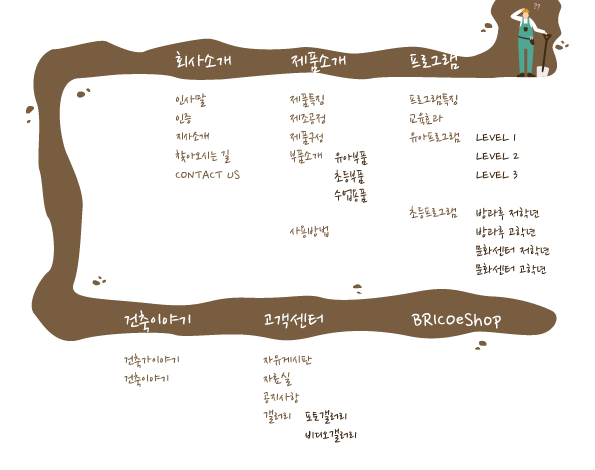 ??
회사소개 제품소개 프로그램
인사말 제품특징 프로그램특징
인증 제조공정 교육효과
지사소개 제품구성 유아프로그램 LEVEL 1
찾아오시는 길 부품소개 유아부품 LEVEL 2
CONTACT US 초등부품 LEVEL 3
수업용품
초등프로그램 방과후 저학년
사용방법 방과후 고학년
문화센터 저학년
문화센터 고학년
건축이야기 고객센터 BRICOeShop
건축가이야기 자유게시판
건축이야기 자료실
공지사항
갤러리 포토갤러리
비디오갤러리